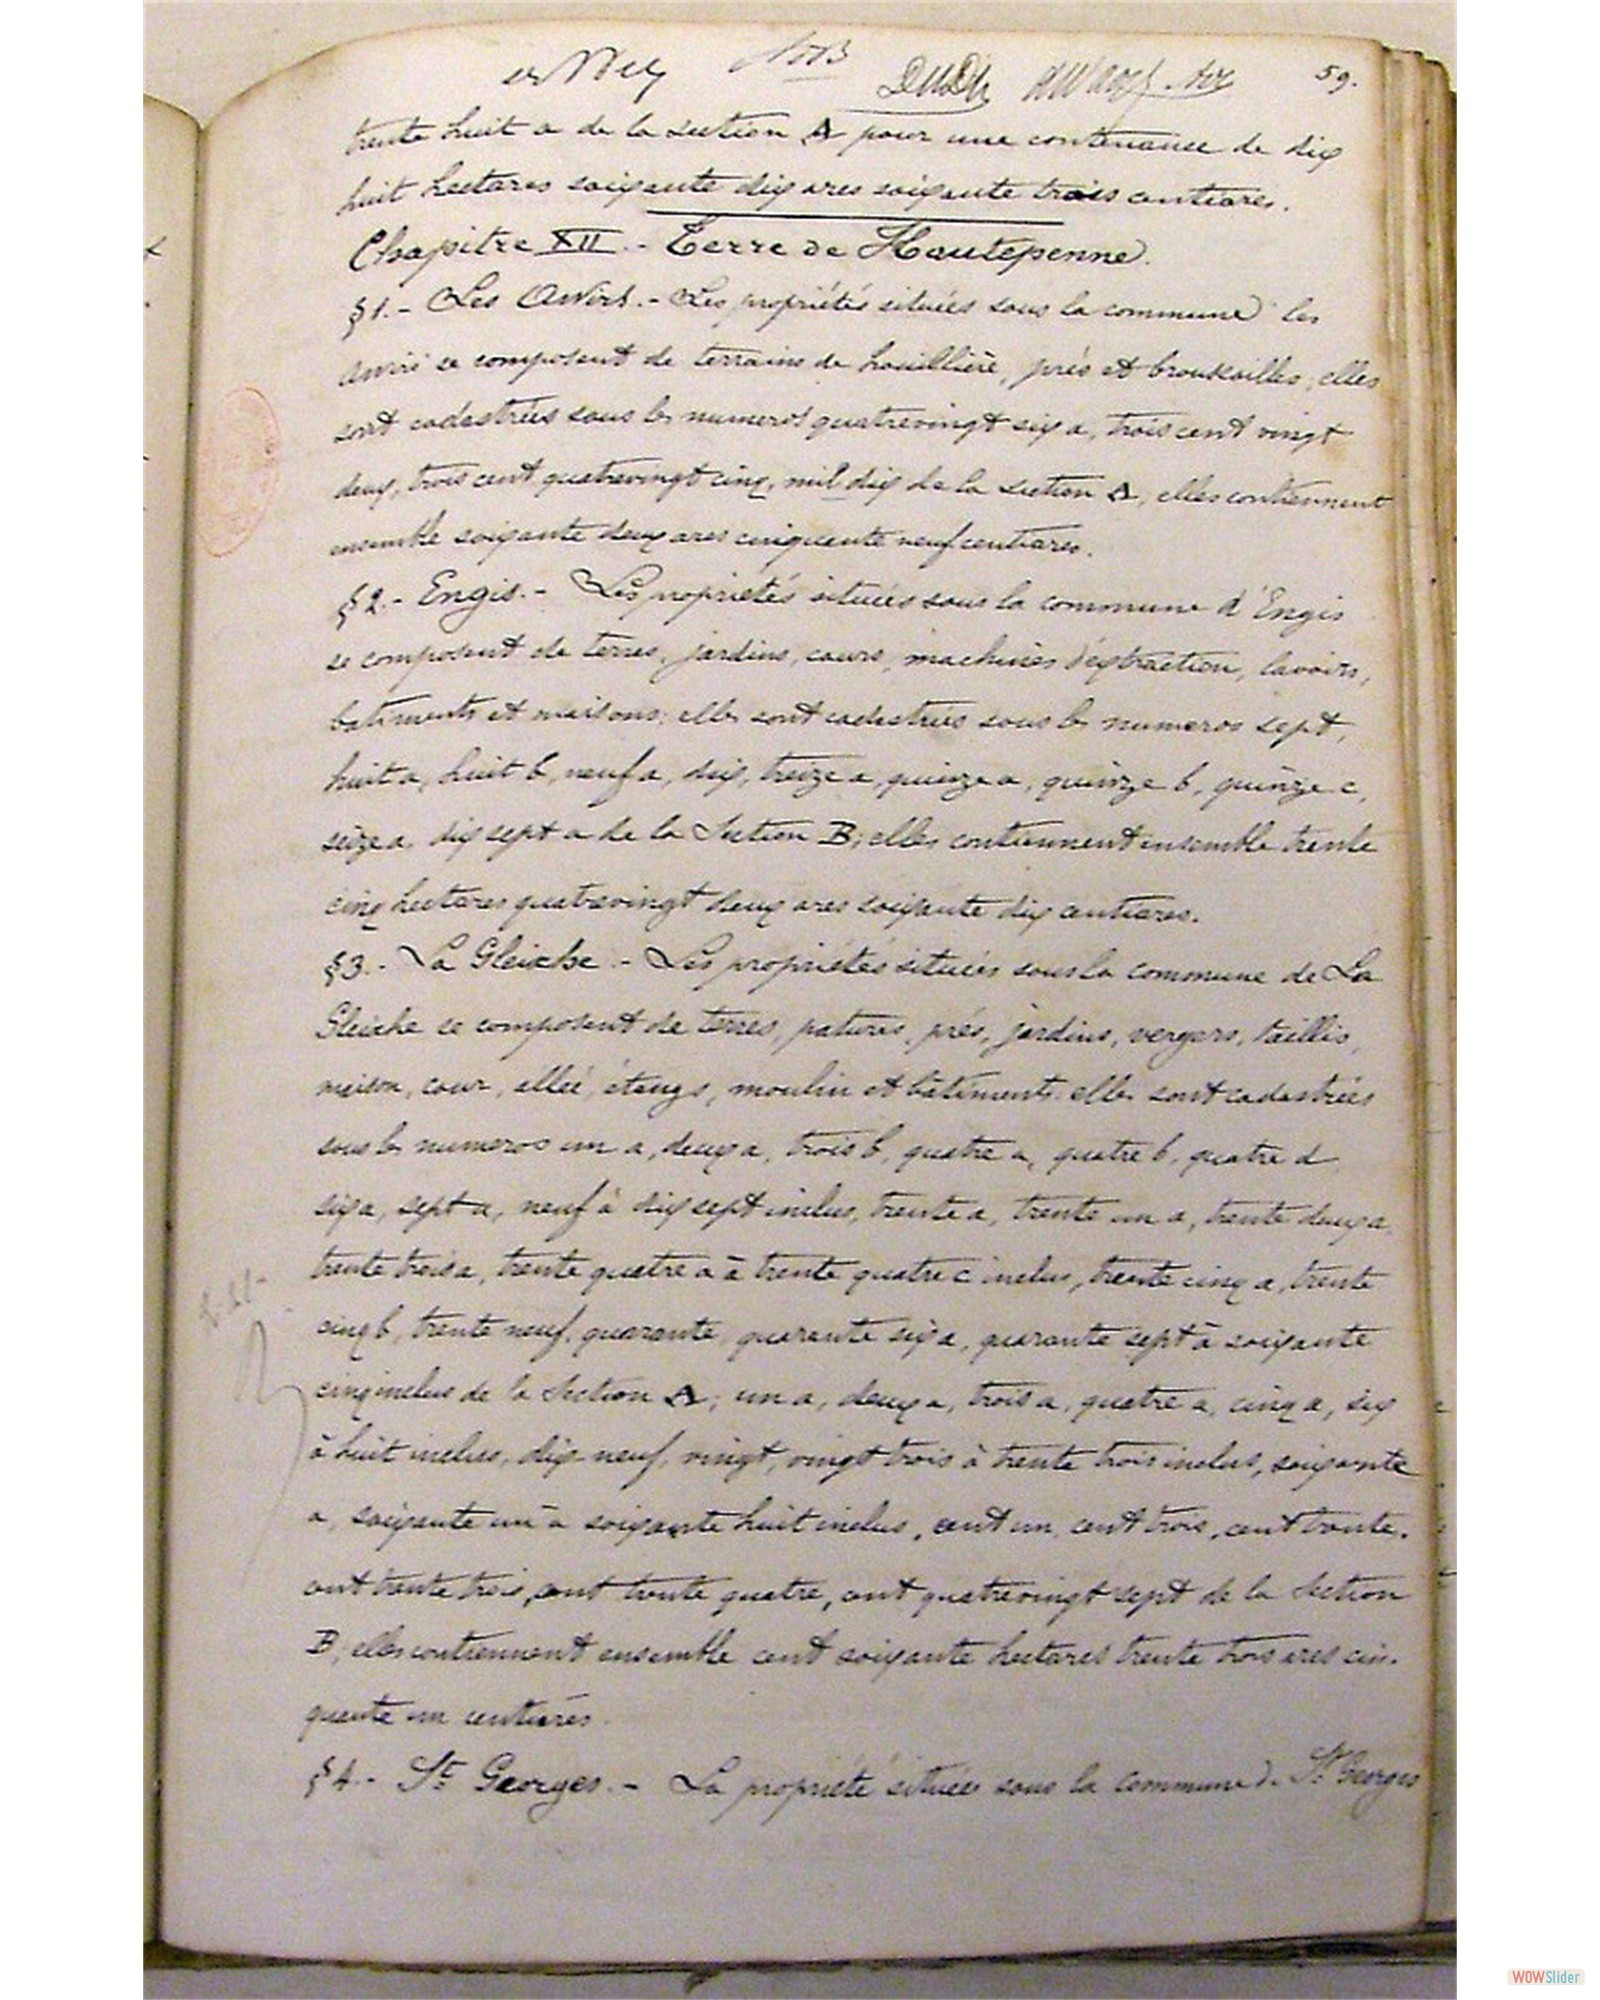 59.
trente huit a de la section A pour une contenance de dix
huit hectares soixante dix ares soixante trois centiares.
Chapitre XII. - Terre de Hautepenne.
§1. - Les Awirs. - Les propriétés situées sous la commune les
awirs se composent de terrains de houillière, prés et broussailles, elles
sont cadastrées sous les numeros quatrevingt six a, trois cent vingt
deux, trois cent quatrevingt cinq, mil dix de la section A, elles contiennent
ensemble soixante deux ares cinquante neuf centiares.
§2. - Engis. - Les propriétés situées sous la commune d'Engis
se composent de terres, jardins, cours, machines d'extraction, lavoirs,
batiments et maisons; elles sont cadastrées sous les numeros sept,
huit a, huit b, neuf a, dix, treize a, quinze a, quinze b, quinze c,
seize a, dix sept a de la Section B; elles contiennent ensemble trente
cinq hectares quatrevingt deux ares soixante dix centiares.
§3. - La Gleixhe. - Les propriétés situées sous la commune de La
Gleixhe se composent de terres, patures, prés, jardins, vergers, taillis,
maison, cour, allée, étangs, moulin et bâtiments. elles sont cadastrées
sous les numeros un a, deux a, trois b, quatre a, quatre b, quatre d
six a, sept a, neuf à dix sept inclus, trente a, trente un a, trente deux a
trente trois a, trente quatre a à trente quatre c inclus, trente cinq a, trente
cinq b, trente neuf, quarante, quarante six a, quarante sept à soixante
cinq inclus de la Section A; un a, deux a, trois a, quatre a, cinq a, six
à huit inclus, dix-neuf, vingt, vingt trois à trente trois inclus, soixante
a, soixante un à soixante huit inclus, cent un, cent trois, cent trente.
cent trente trois, cent trente quatre, cent quatrevingt sept de la Section
B, elles contiennent ensemble cent soixante hectares trente trois ares cin-
quante un centiares.
§4. - St Georges. - La propriété située sous la commune de St Georges
WOWSlider